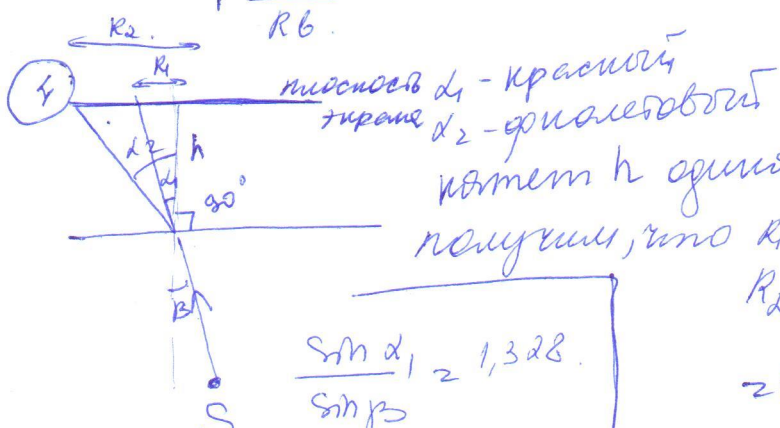 Rб.
R₂.
R₁
4
плоскость
экрана
α₁ - красный
α₂ - фиолетовый
α₂
h
α₁
90°
катет h один
получим, что R₁
R₂
β
S
sin α₁ = 1,328.
sin β
=